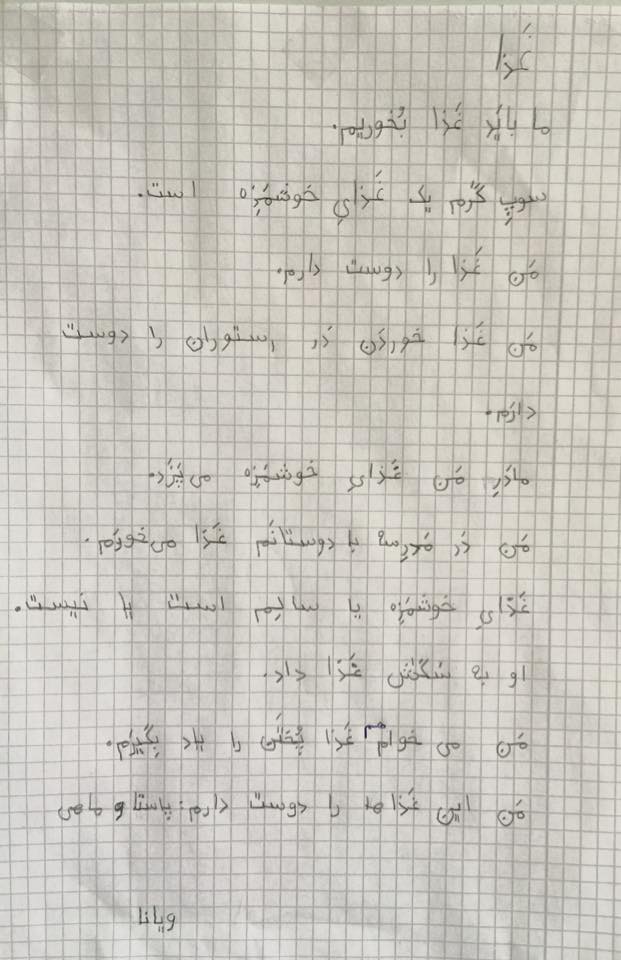 غَذا
ما بایَد غَذا بُخوریم.
سوپِ گَرم یک غَذایِ خوشمَزِه است.
مَن غَذا را دوست دارم.
مَن غَذا خوردَن دَر رستوران را دوست
دارَم.
مادَرِ مَن غَذایِ خوشمَزِه می‌پَزَد.
مَن دَر مَدرِسه با دوستانَم غَذا می‌خورَم.
غَذایِ خوشمَزِه یا سالِم است یا نیست.
او به سَگَش غَذا داد.
مَن می خواهم غَذا پُختَن را یاد بِگیرَم.
مَن این غَذاها را دوست دارم: پاستا و ماهی
ویانا